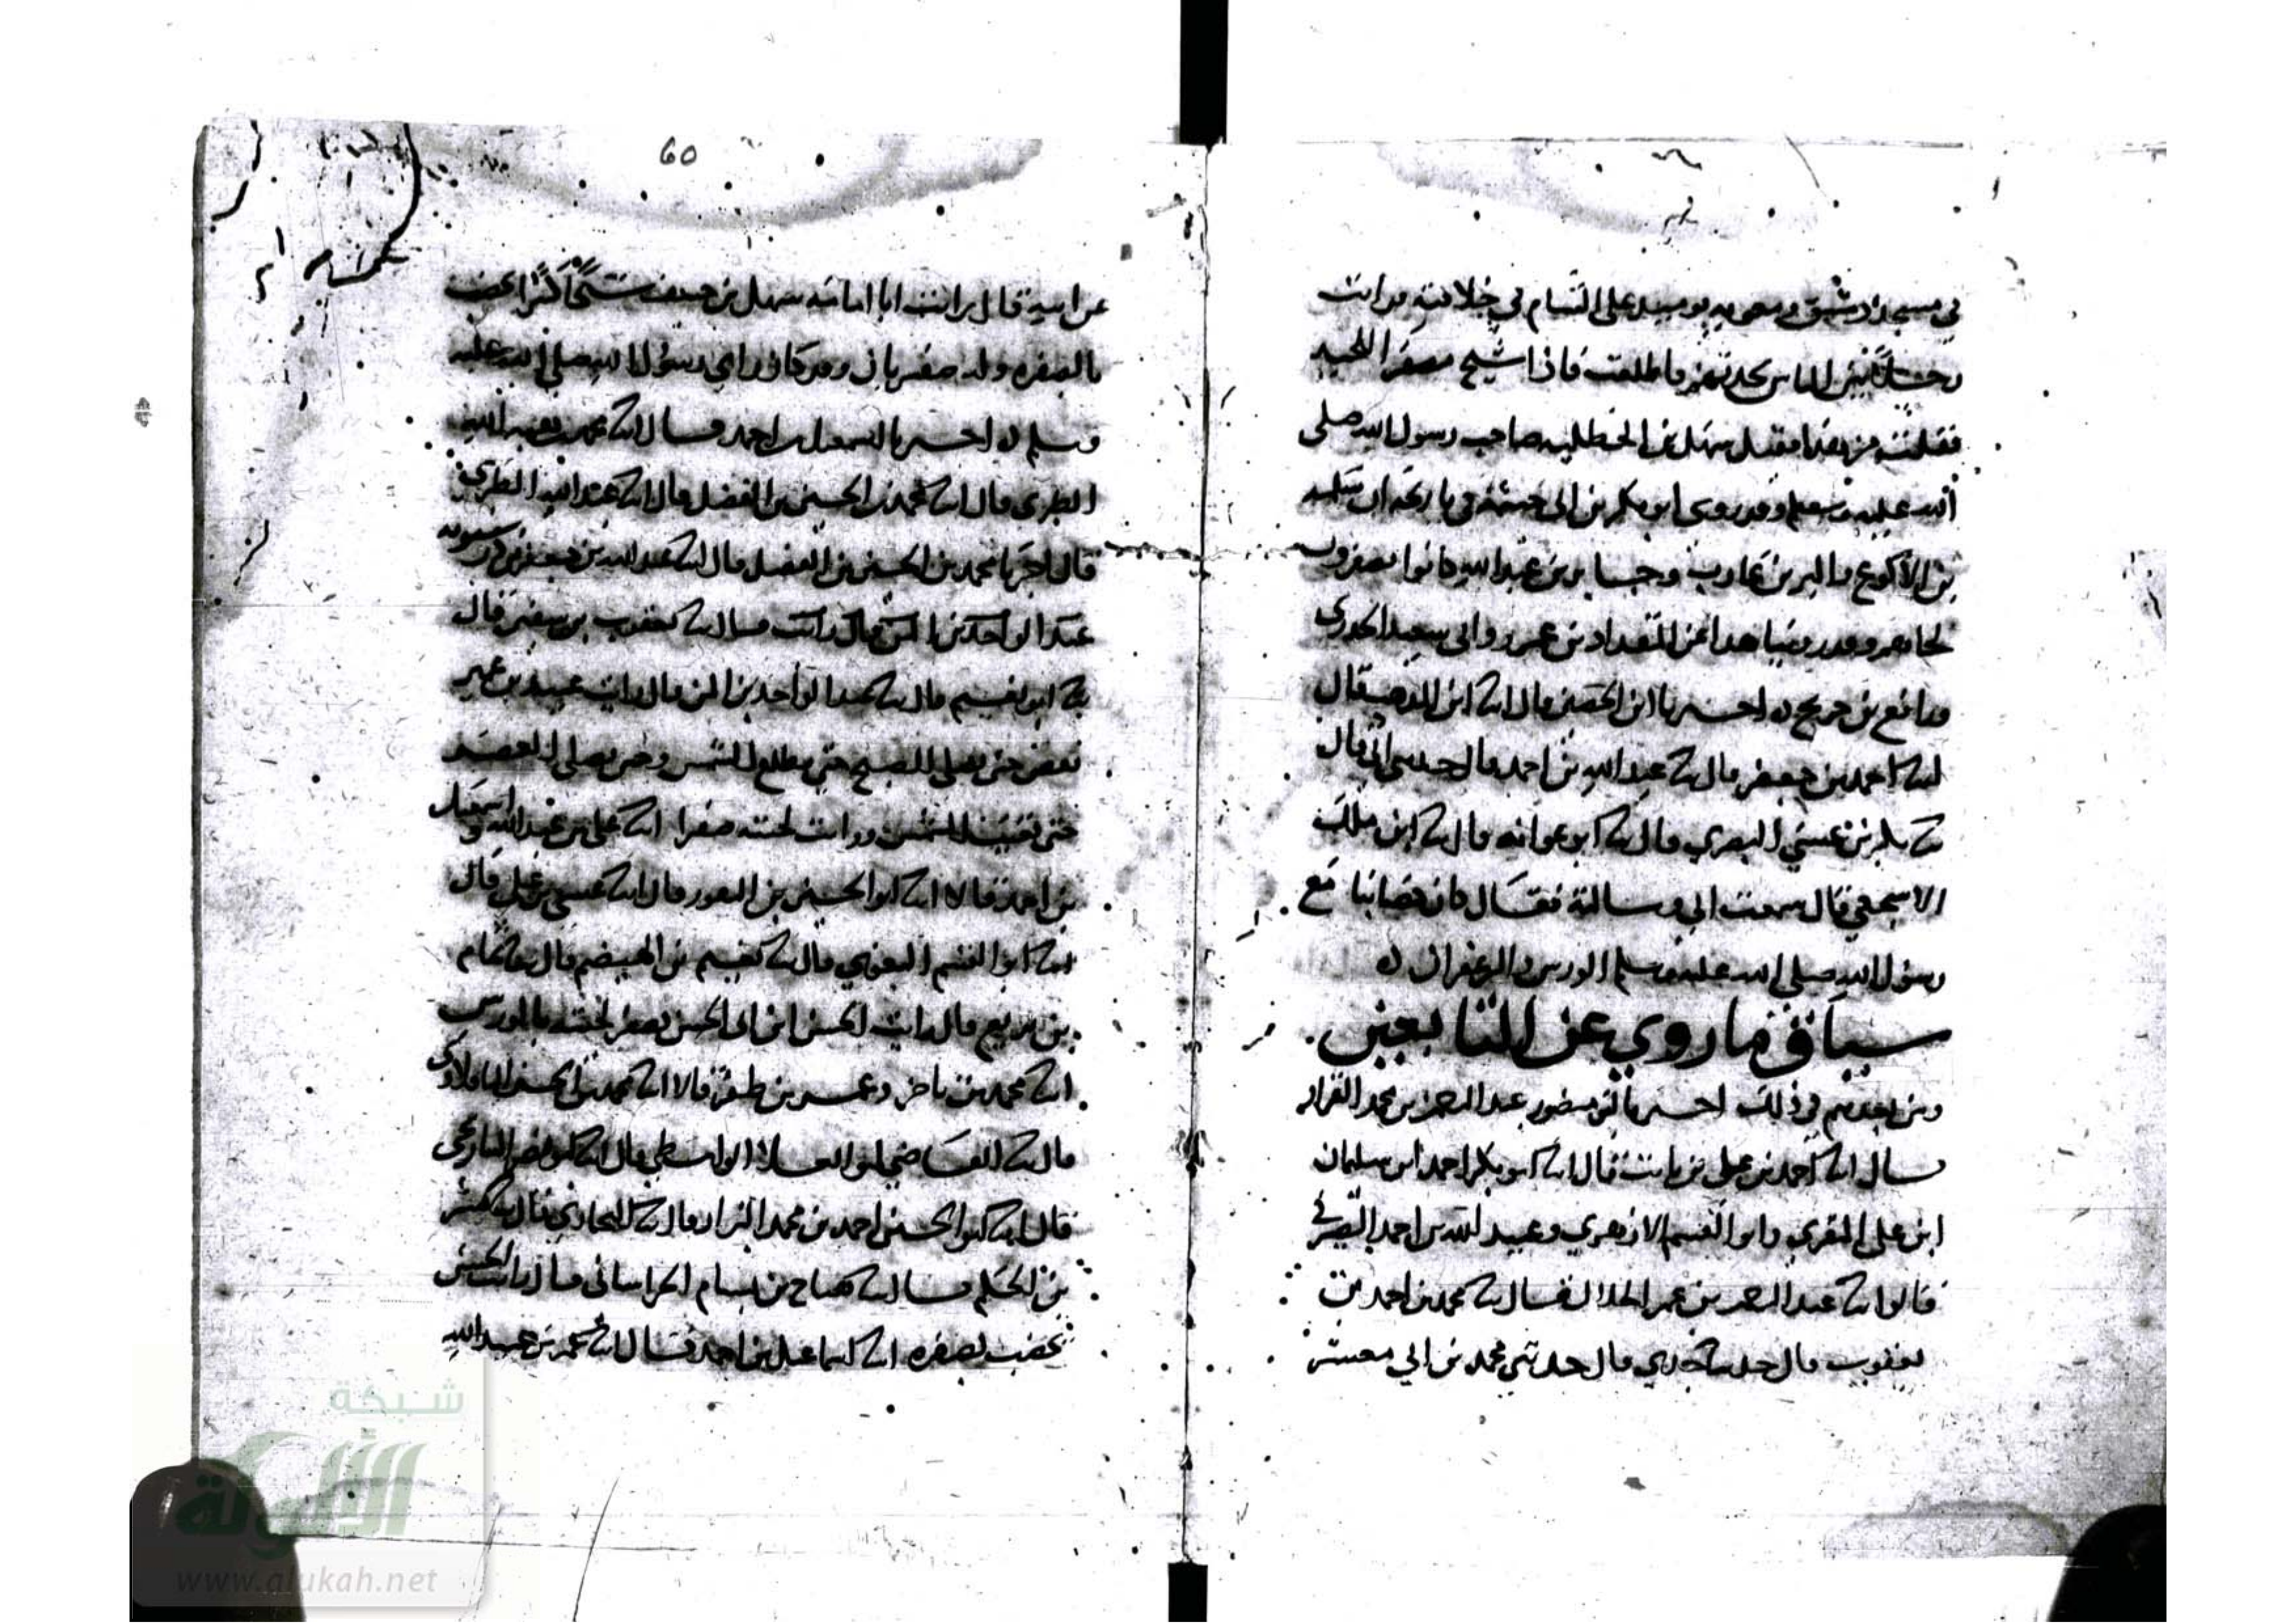 في مسجد دمشق ومعويه يوميد على الشام في خلافته فرايت
رجلا بين الناس يحدثهم فاطلعت فاذا شيخ مصفر اللحيه
فقلت من هذا فقيل سهل بن الحنظليه صاحب رسول الله صلى
الله عليه وسلم وقد روى ابو بكر بن ابي خيثمة في تاريخه ان سلمه
بن الاكوع والبر بن عازب وجابر بن عبد الله كانوا يصفرون
لحاهم وقد روينا هذا عن المقداد بن عمرو وابي سعيد الخدري
ورافع بن خديج اخبرنا ابن الحصين قال انا ابن المذهب قال
انا احمد بن جعفر قال نا عبد الله بن احمد قال حدثني ابي قال
نا بكر بن عيسى البصري قال نا ابو عوانه قال نا ابن ملك
الاشجعي قال سمعت ابي وسالته فقال كان خضابنا مع
رسول الله صلى الله عليه وسلم الورس والزعفران
سياق ما روي عن التابعين
ومن بعدهم في ذلك اخبرنا ابو منصور عبد الرحمن بن محمد القزاز
قال انا احمد بن علي بن ثابت قال انا ابو بكر احمد ابن سليمان
ابن علي المقري وابو القسم الازهري وعبيد الله بن احمد الصيرفي
قالوا نا عبد الرحمن بن عمر الخلال قال نا محمد بن احمد بن
يعقوب قال حدثنا جدي قال حدثني محمد بن ابي معشر
60
عن ابيه قال رايت ابا امامه سهل بن حنيف شيخا كبيرا يخضب
بالصفره وله ضفيرتان وقد كان راى رسول الله صلى الله عليه
وسلم اخبرنا اسمعيل بن احمد قال انا محمد بن هبة الله
الطبري قال انا محمد بن الحسين بن الفضل قال انا عبد الله الطبري
قال اخبرنا محمد بن الحسين بن الفضل قال انا عبد الله بن جعفر بن درستويه
عبد الواحد بن ايمن قال رايت قال نا يعقوب بن سفين قال
نا ابو نعيم قال نا عبد الواحد بن ايمن قال رايت عبيد بن عمير
يقص حين يصلي الصبح حتى يطلع الشمس وحين يصلي العصر
حتى تغيب الشمس ورايت لحيته صفرا انا علي بن عبد الله واسمعيل
بن احمد قالا انا ابو الحسين بن النقور قال انا عيسى بن علي قال
انا ابو القسم البغوي قال نا نعيم بن الهيصم قال نا تمام
بن بزيع قال رايت الحسن ابن ابي الحسن يصفر لحيته بالورس
انا محمد بن ناصر وعمر بن ظفر قالا انا محمد بن الحسن الباقلاوي
قال نا القاضي ابو العلا الواسطي قال انا ابو نصر النيازكي
قال انا ابو الحسين احمد بن محمد البزاز قال نا البخاري قال نا بشر
بن الحكم قال نا هياج بن بسام الخراساني قال رايت الحسن
يخضب بصفره انا اسماعيل بن احمد قال انا محمد بن هبة الله
شبكة
الألوكة
www.alukah.net